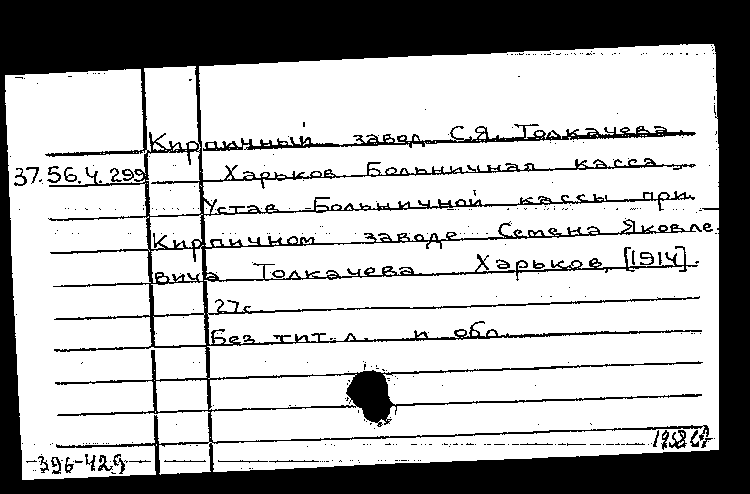 Кирпичный завод С.Я. Толкачева.
37.56.4.299 Харьков. Больничная касса.
Устав Больничной кассы при
Кирпичном заводе Семена Яковле-
вича Толкачева Харьков, [1914].
27с.
Без тит. л. и обл.
396-429